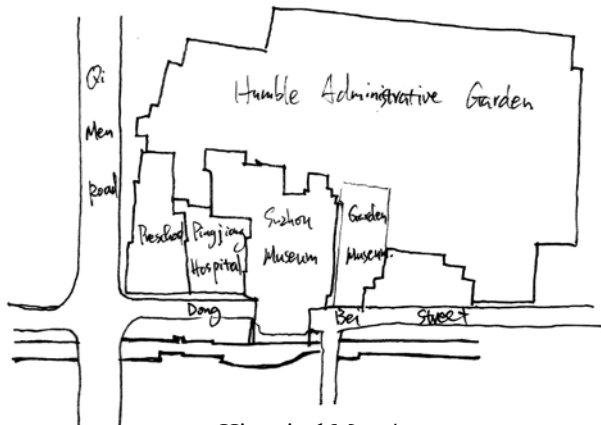 Qi
Men
Road
Humble Administrative Garden
Preschool
Pingjiang
Hospital
Suzhou
Museum
Garden
Museum
Dong Bei Street